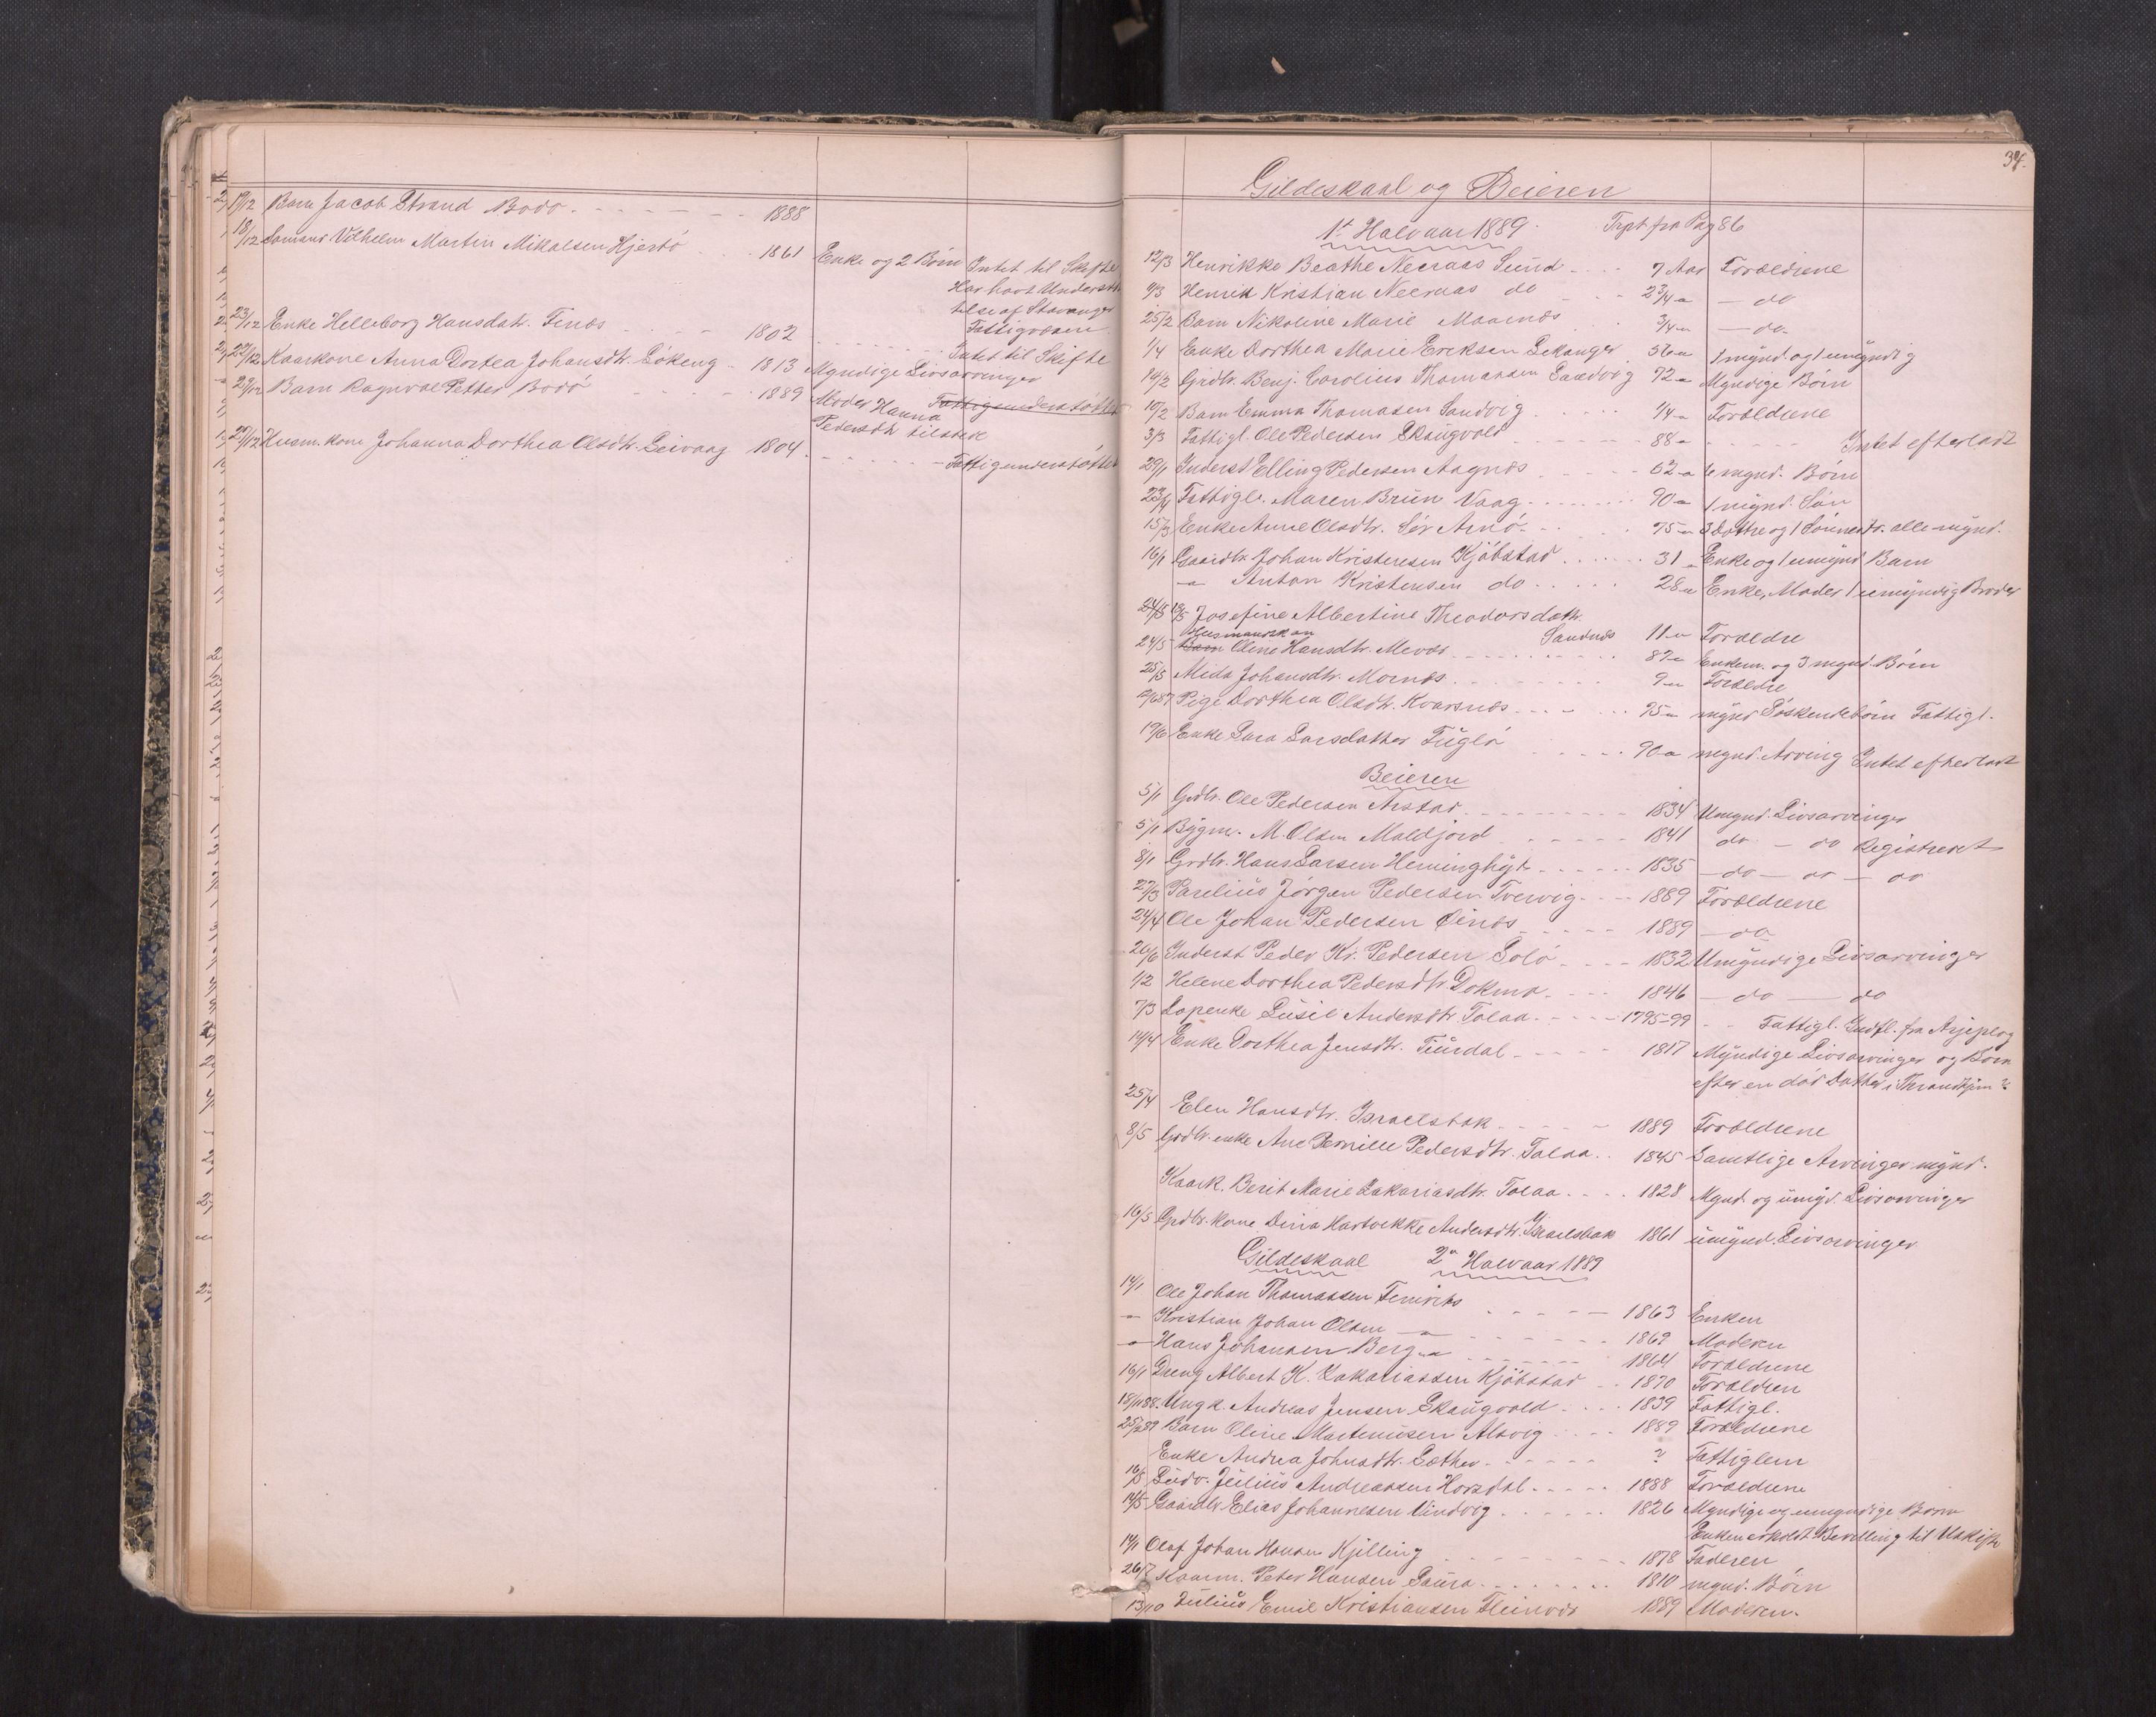 19/12 Barn Jacob Strand Bodø 1888
18/12 Lømand Vilhelm Martin Mikalsen Hjertø 1861 Enke og 2 Børn Intet til Skifte
Har havt Understøt
telse af Stavanger
Fattigvæsen
23/12 Enke Helleborg Hansdatr. Finæs 1802 Intet til Skifte
27/12 Kaarkone Anna Dortea Johansdtr. Løkeng 1813 Myndige Livsarvinger
29/12 Barn Ragnval Petter Bodø 1889 Moder Hanna Fattigunderstøttet
Pedersdtr tilstede
27/12 Husm. kone Johanna Dorthea Olsdtr. Leivaag 1804 Fattigunderstøttet
37.
Gildeskaal og Beieren
1ste Halvaar 1889 Trpt fra Pag 86
12/3 Henrikke Beathe Neeraas Sund 7 Aar Forældrene
9/3 Henrik Kristian Neeraas do 2 3/4 " do
25/2 Barn Nikoline Marie Maarnæs 3/4 " do
1/4 Enke Dorthea Marie Eriksen Lekanger 56 " 1 mynd. og 1 umyndig
14/2 Grdbr. Benj. Carolius Thomassen Sandvig 72 " Myndige Børn
10/2 Barn Emma Thomasen Sandvig 1/4 " Forældrene
3/3 Fattigl. Ole Pedersen Skaugvold 88 " Intet efterladt
29/1 Inderst Elling Pedersen Aagnæs 62 " 6 mynd. Børn
23/4 Fattigl. Maren Brun Vaag 90 " 1 mynd. Søn
15/3 Enke Anne Olsdtr. Sør Arnø 75 " 3 Døttre og 1 Sønnedtr. alle mynd.
16/1 Gaardbr. Johan Kristensen Kjøbstad 31 " Enke og 1 umynd Barn
" Anton Kristensen do 28 " Enke, Moder 1 umyndig Broder
13/5 Josefine Albertine Theodorsdattr.
Sandnæs 11 " Forældre
Husmandskon
24/5 Barn Oline Hansdtr. Mevær 87 " Enkem. og 3 mynd. Børn
25/5 Alida Johansdtr. Mornæs 9 " Forældre
87 Pige Dorthea Olsdtr. Kvarsnæs 75 " mynd Søskendebørn Fattigl.
19/6 Enke Sara Larsdatter Fuglø 90 " mynd. Arving Intet efterladt
Beieren
5/1 Grdbr. Ole Pedersen Arstad 1834 Umynd. Livsarvinger
5/1 Bygm. M. Olsen Moldjord 1841 do - do Registreret
8/1 Grdbr. Hans Larsen Heminghyt 1835 do - do - do
27/3 Parelius Jørgen Pedersen Tvervig 1889 Forældrene
24/4 Ole Johan Pedersen Øinæs 1889 do
26/6 Inderst Peder Kr. Pedersen Solø 1832 Umyndige Livsarvinger
1/2 Helene Dorthea Pedersdtr Dokmo 1846 do do
7/3 Lapenke Susil Andersdtr Tolaa 1795-99 Fattigl. Indfl. fra Arjeplog
14/4 Enke Dorthea Jensdtr. Tiurdal 1817 Myndige Livsarvinger og Børn
efter en død Datter i Throndhjem
25/4 Elen Hansdtr. Israelsbak 1889 Forældrene
8/5 Grdbr. enke Ane Pernille Pedersdtr. Tolaa 1845 Samtlige Arvinger mynd.
Kaark. Berit Marie Zakariasdtr. Tolaa 1828 Mynd. og umyd. Livsarvinger
16/5 Grdbr. kone Dina Hartvikke Andersdtr. Israelsbak 1861 umynd. Livsarvinger
Gildeskaal 2det Halvaar 1889
14/1 Ole Johan Thomassen 1863 Enken
" Kristian Johan Olsen " 1869 Moderen
" Hans Johansen Berg " 1864 Forældrene
16/1 Dreng Albert K. Zakariassen Kjøbstad 1870 Forældren
18/11 88. Ungk. Andreas Jensen Skaugvold 1839 Fattigl.
25/2 89 Barn Oline Martinusen Alsvig 1889 Forældrene
Enke Andrea Johnsdtr. Sæther ? Fattiglem
16/8 Ludv. Julius Andreassen Horsdal 1888 Forældrene
14/5 Gaardbr Elias Johannesen Sundvig 1826 Myndige og umyndige Børn
Enken erholdt Bevilling til Uskifte
14/1 Olaf Johan Hansen Kjelling 1878 Faderen
26/7 Kaarm. Peter Hansen Saura 1810 mynd. Børn
13/10 Julius Emil Kristiansen Fleinvær 1889 Moderen.